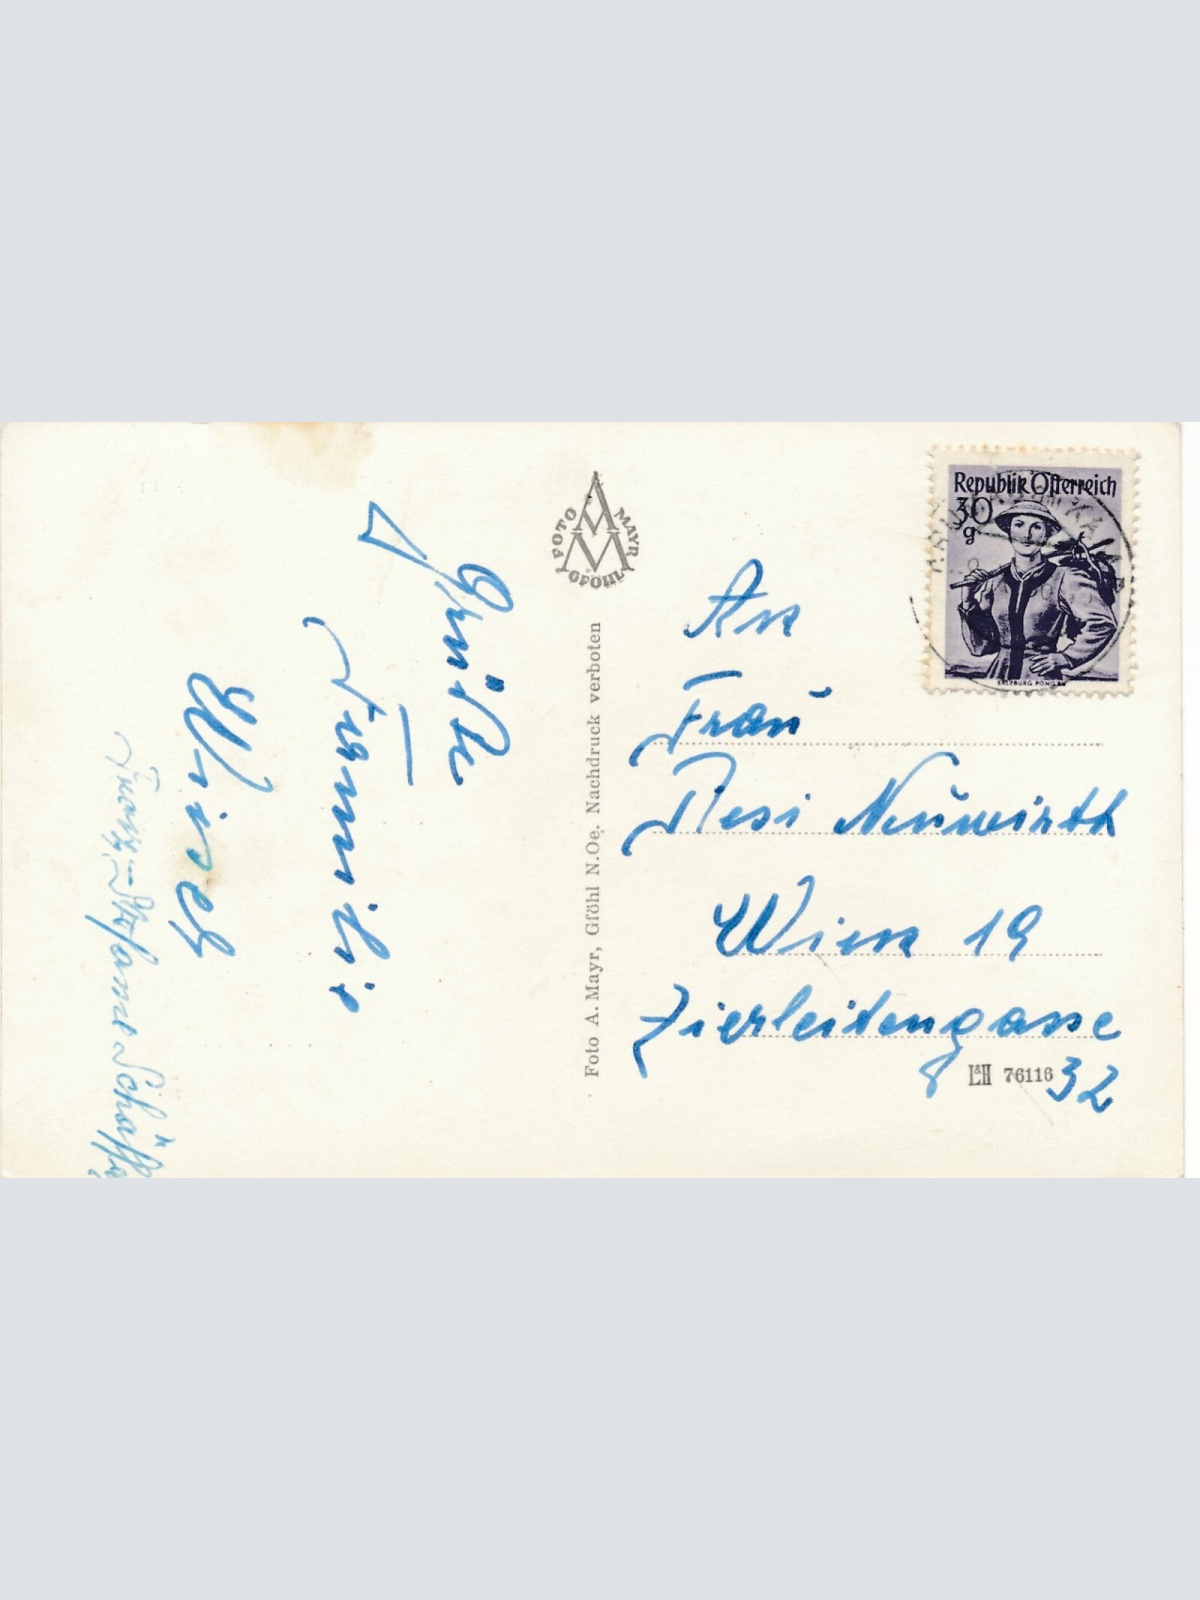 Grüße
Familie
Franz
FOTO MAYR GFÖHL
Foto A. Mayr, Gföhl N.Oe. Nachdruck verboten
Republik Österreich
30
g
SALZBURG PONGAU
An
Frau
Resi Neuwirth
Wien 19
Zierleitengasse
32
L&H 76116